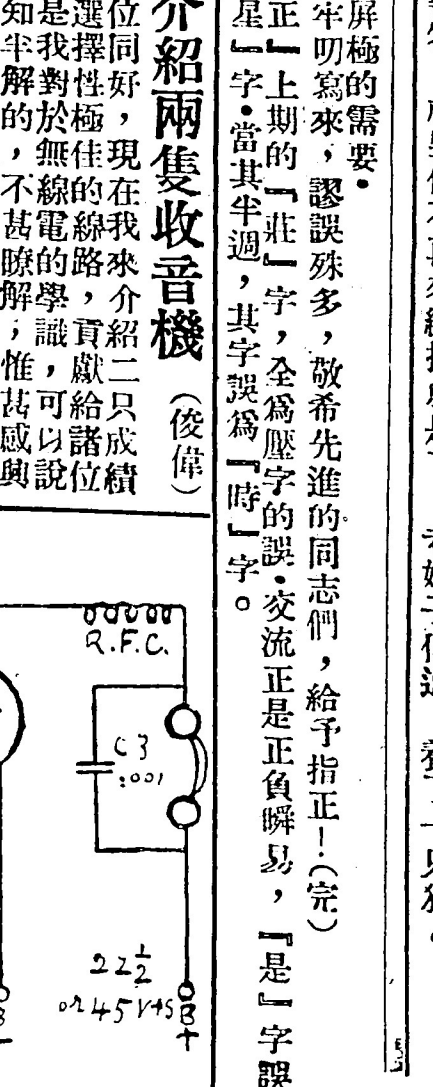 屏極的需要・
牢叨寫來，謬誤殊多，敬希先進的同志們，給予指正！（完）
正』上期的『莊』字，全爲壓字的誤・交流正是正負瞬易，『是』字誤
星』字・當其半週，其字誤爲『時』字。
介紹兩隻收音機（俊偉）
位同好，現在我來介紹二只成績
選擇性極佳的線路，貢獻給諸位
是我對於無線電的學識，可以說
知半解的，不甚瞭解，惟甚感興
R.F.C.
C3
.001
22½
or 45 V+S
B
+
B
−